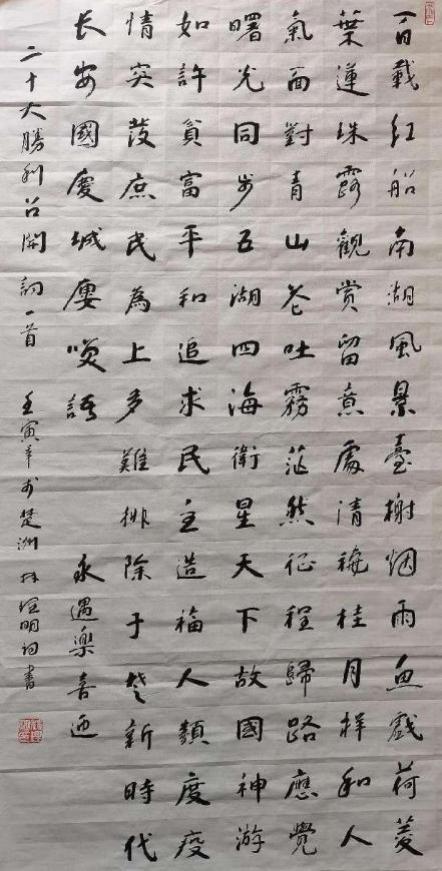 百載红船南湖風景臺榭烟雨魚戲荷菱
葉蓮珠露觀賞留意處清桂月祥和人
氣面對青山苍吐霧茫然征程歸路應覺
曙光同步五湖四海衛星天下故國神游
如許貧富平和追求民主造福人類度疫
情突發庶民為上多難排除于楚新時代
长安國慶城慶語永遇樂喜迎
二十大勝利召開詞一首壬寅年於楚洲明詞書